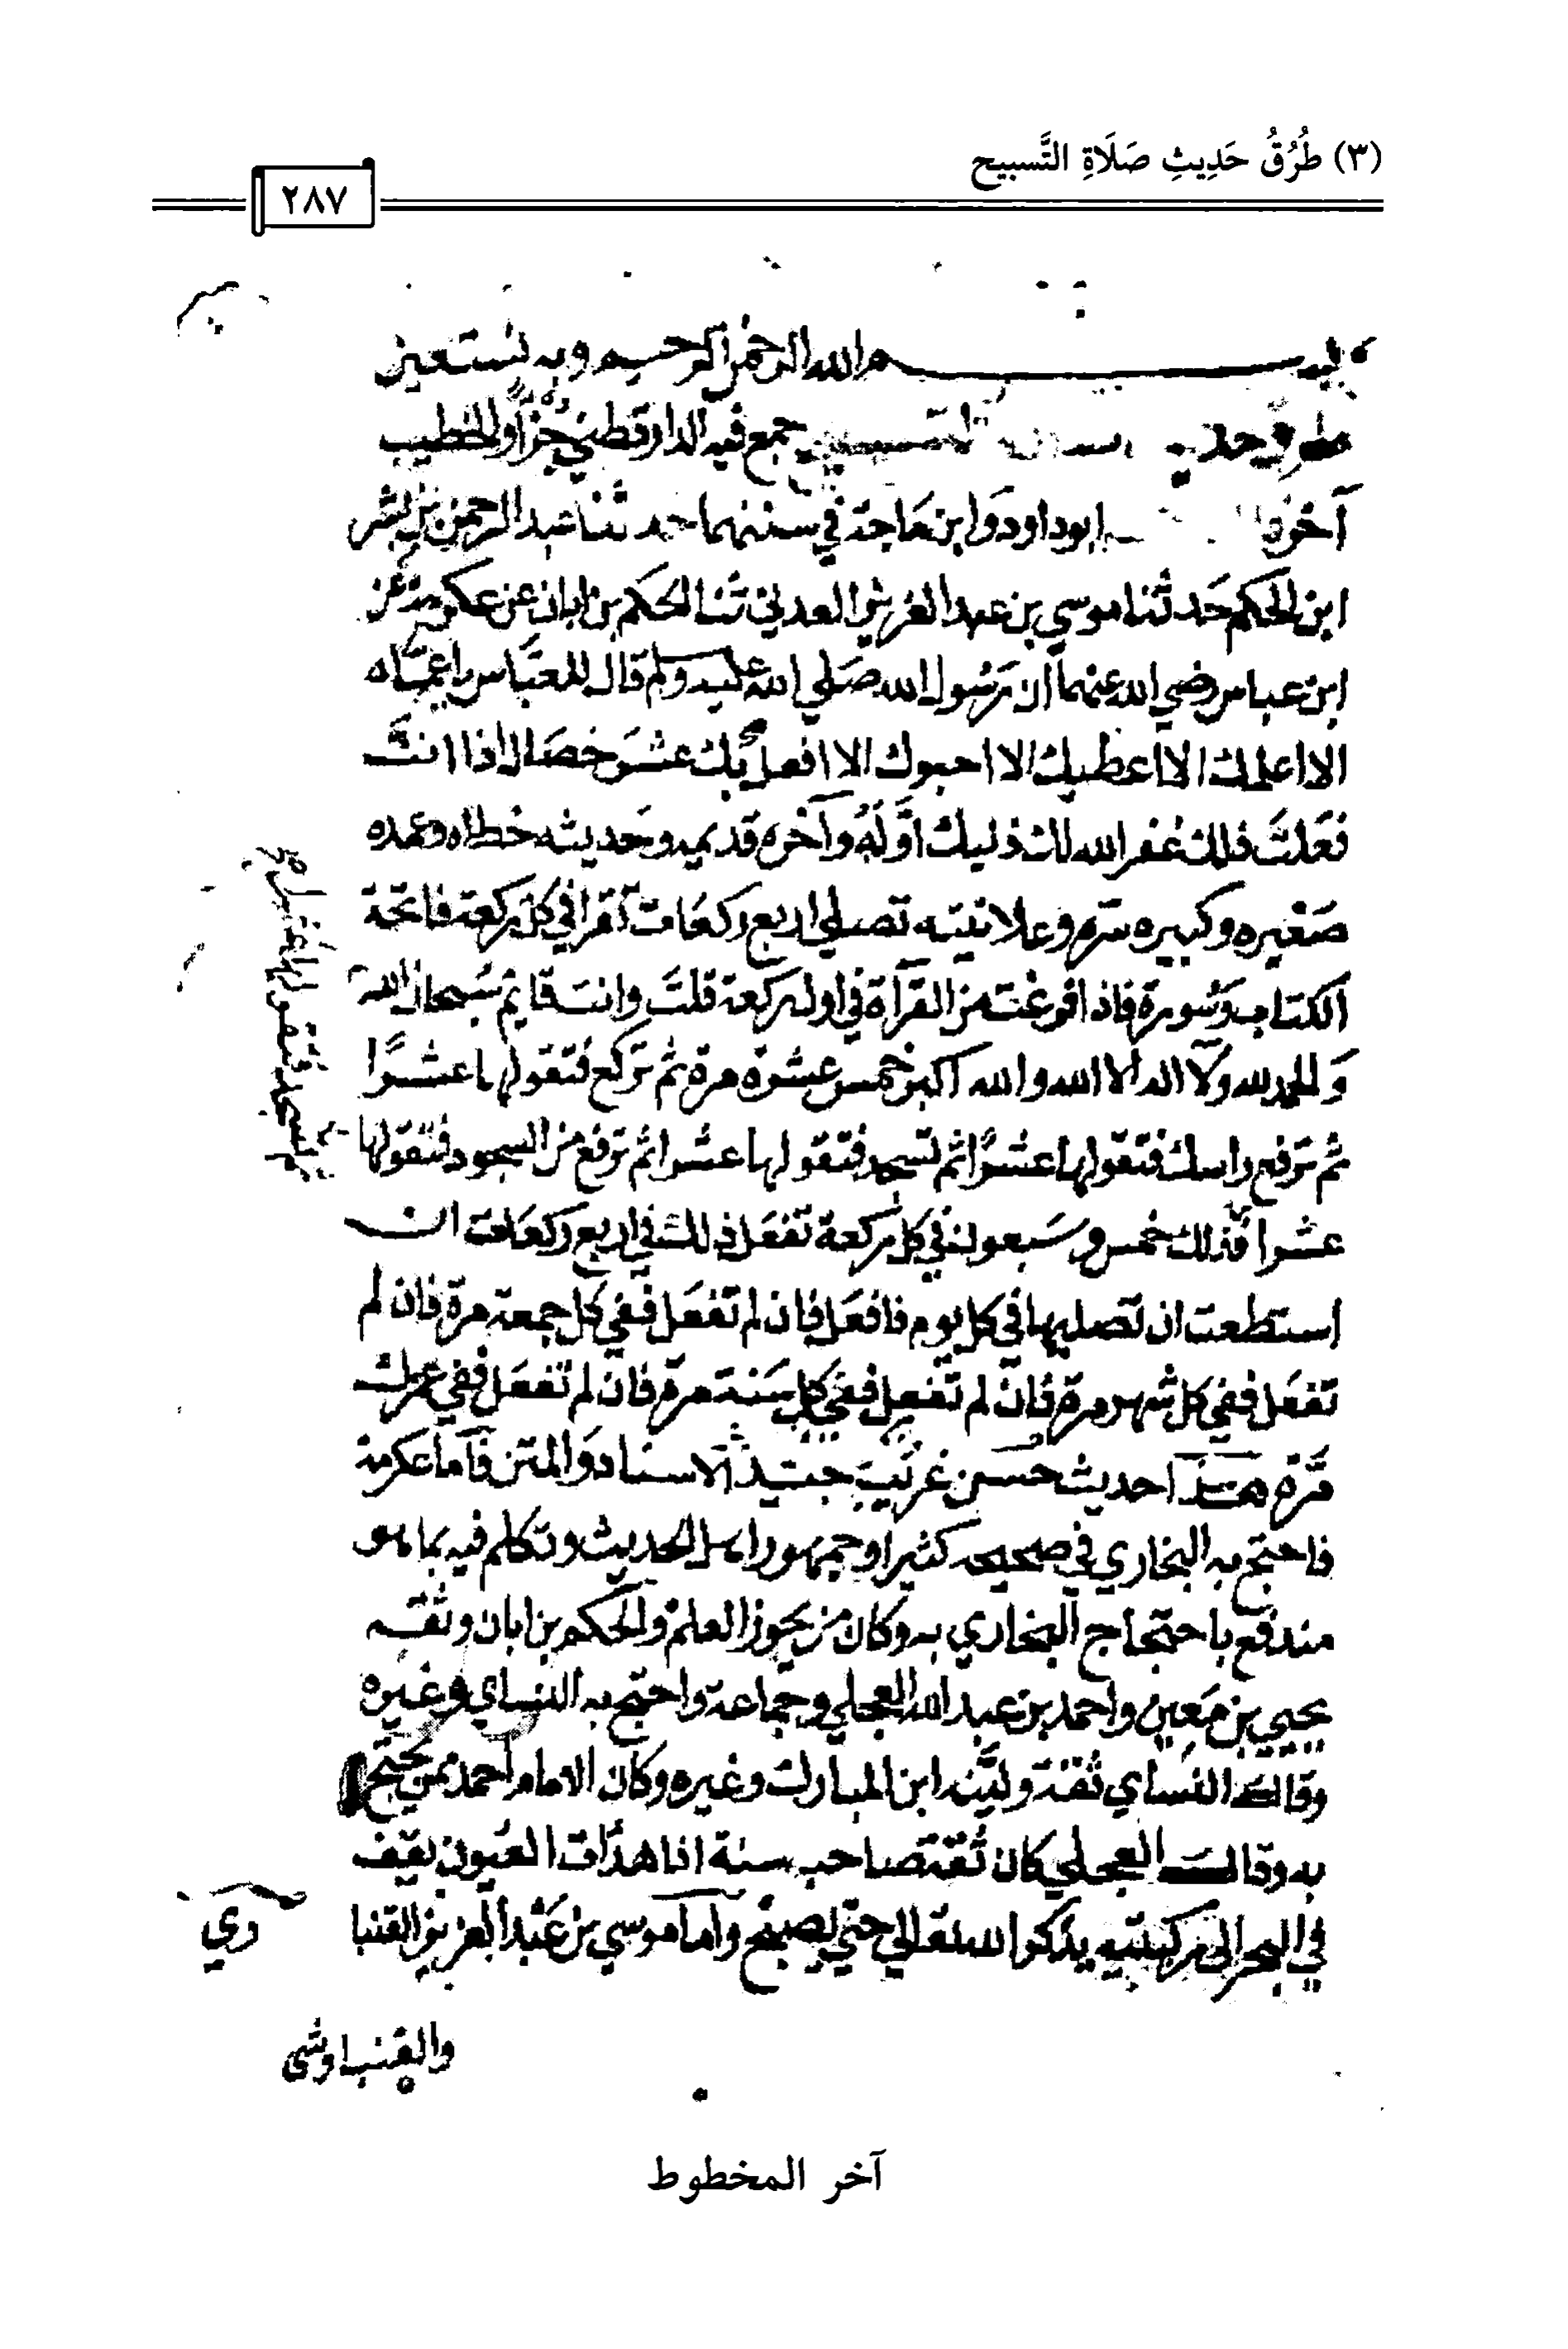 (٣) طُرُقُ حَدِيثِ صَلَاةِ التَّسبيح
٢٨٧
بسم الله الرحمن الرحيم وبه نستعين
طرق حديث التسبيح جمع فيه الدارقطني جُزْأً والخطيب
آخر ابو داود وَابن مَاجة في سننهما حدثنا عبد الرحمن بن بشر
ابن الحكم حَدثنا موسي بن عبد العزيز العدني ثنا الحكم بن ابان عن عكرمة عن
ابن عباس رضي الله عنهما أن رَسُول الله صَلي الله عليه وسلم قال للعبَّاس يا عمّاه
الا اعلمك الا اعطيك الا احبوك الا افعل بك عشرَ خصَال اذا انتَ
فعَلتَ ذلك غفر الله لك ذنبك اوَّلَهُ وآخره قديمه وحَديثه خطاه وعمده
صَغيره وكبيره سره وعلانيته تصلي اربع ركعَات تقرا في كل ركعة فاتحة
الكتاب وسُورة فاذا فرغت من القرآة في اول ركعة قلتَ وانت قايم سُبحان الله
وَالحمد لله ولا اله الا الله والله اكبر خمس عشرة مرة ثم تركع فتقولها عشرًا
ثم ترفع راسك فتقولها عشرًا ثم تسجد فتقولها عشرا ثم ترفع من السجود فتقولها
عشرا فذلك خمس وسَبعون في كل ركعة تفعَل ذلك في اربع ركعَات ان
استطعت ان تصليها في كل يوم فافعَل فان لم تفعَل ففي كل جمعة مرة فان لم
تفعَل ففي كل شهر مرة فان لم تفعل ففي كل سَنة مرة فان لم تفعَل ففي عمرك
مَرة هـذا حديث حسن غريب جيد الاسناد وَالمتن فاما عكرمة
فاحتج به البخاري في صحيحه كثيرا وجمهور اهل الحديث وتكلم فيه بما هو
مندفع باحتجاج البخاري به وكان من بحور العلم والحكم بن ابان وثقه
يحيي بن مَعين واحمد بن عبد الله العجلي وجماعة واحتج به النساي وغيره
وقال النسَاي ثقة وليَّنه ابن المبارك وغيره وكان الامام احمد ممن يحتج
به وقال العجلي كان ثقة صاحب سنة اذا هدَات العُيون يقف
في البحر الى ركبتيه يذكر الله تعَالي حتي يصبح وأما موسي بن عَبْد العزيز القنبا
ري
والقنباوشى
آخر المخطوط